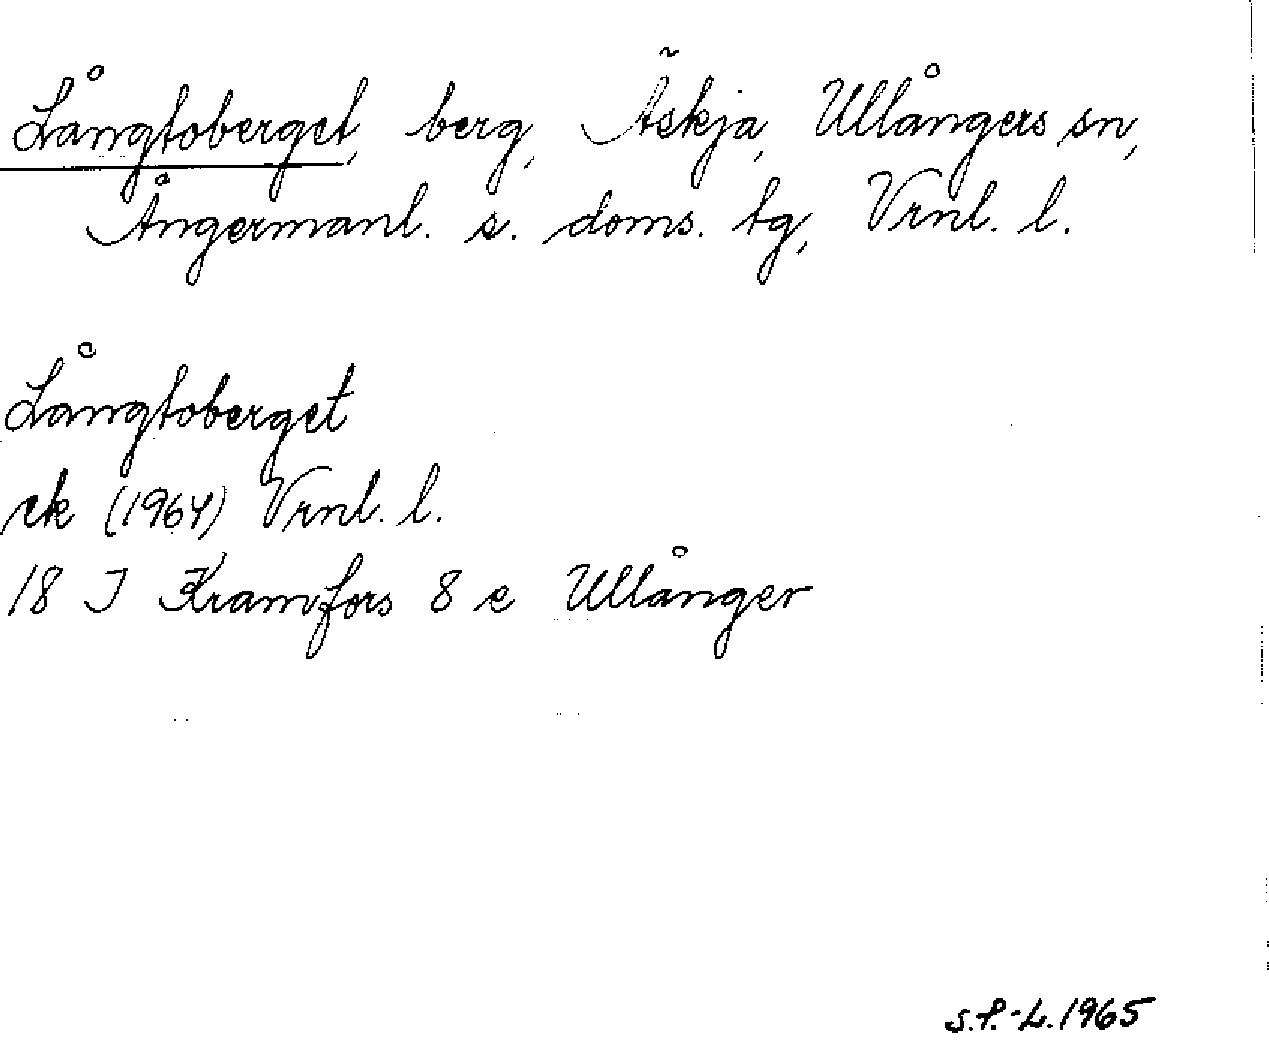 Långtoberget, berg, Äskja, Ullångers sn,
Ångermanl. s. doms. tg, Vrnl. l.
Långtoberget
ek (1964) Vrnl. l.
18 J Kramfors 8 e Ullånger
S.P.-L. 1965